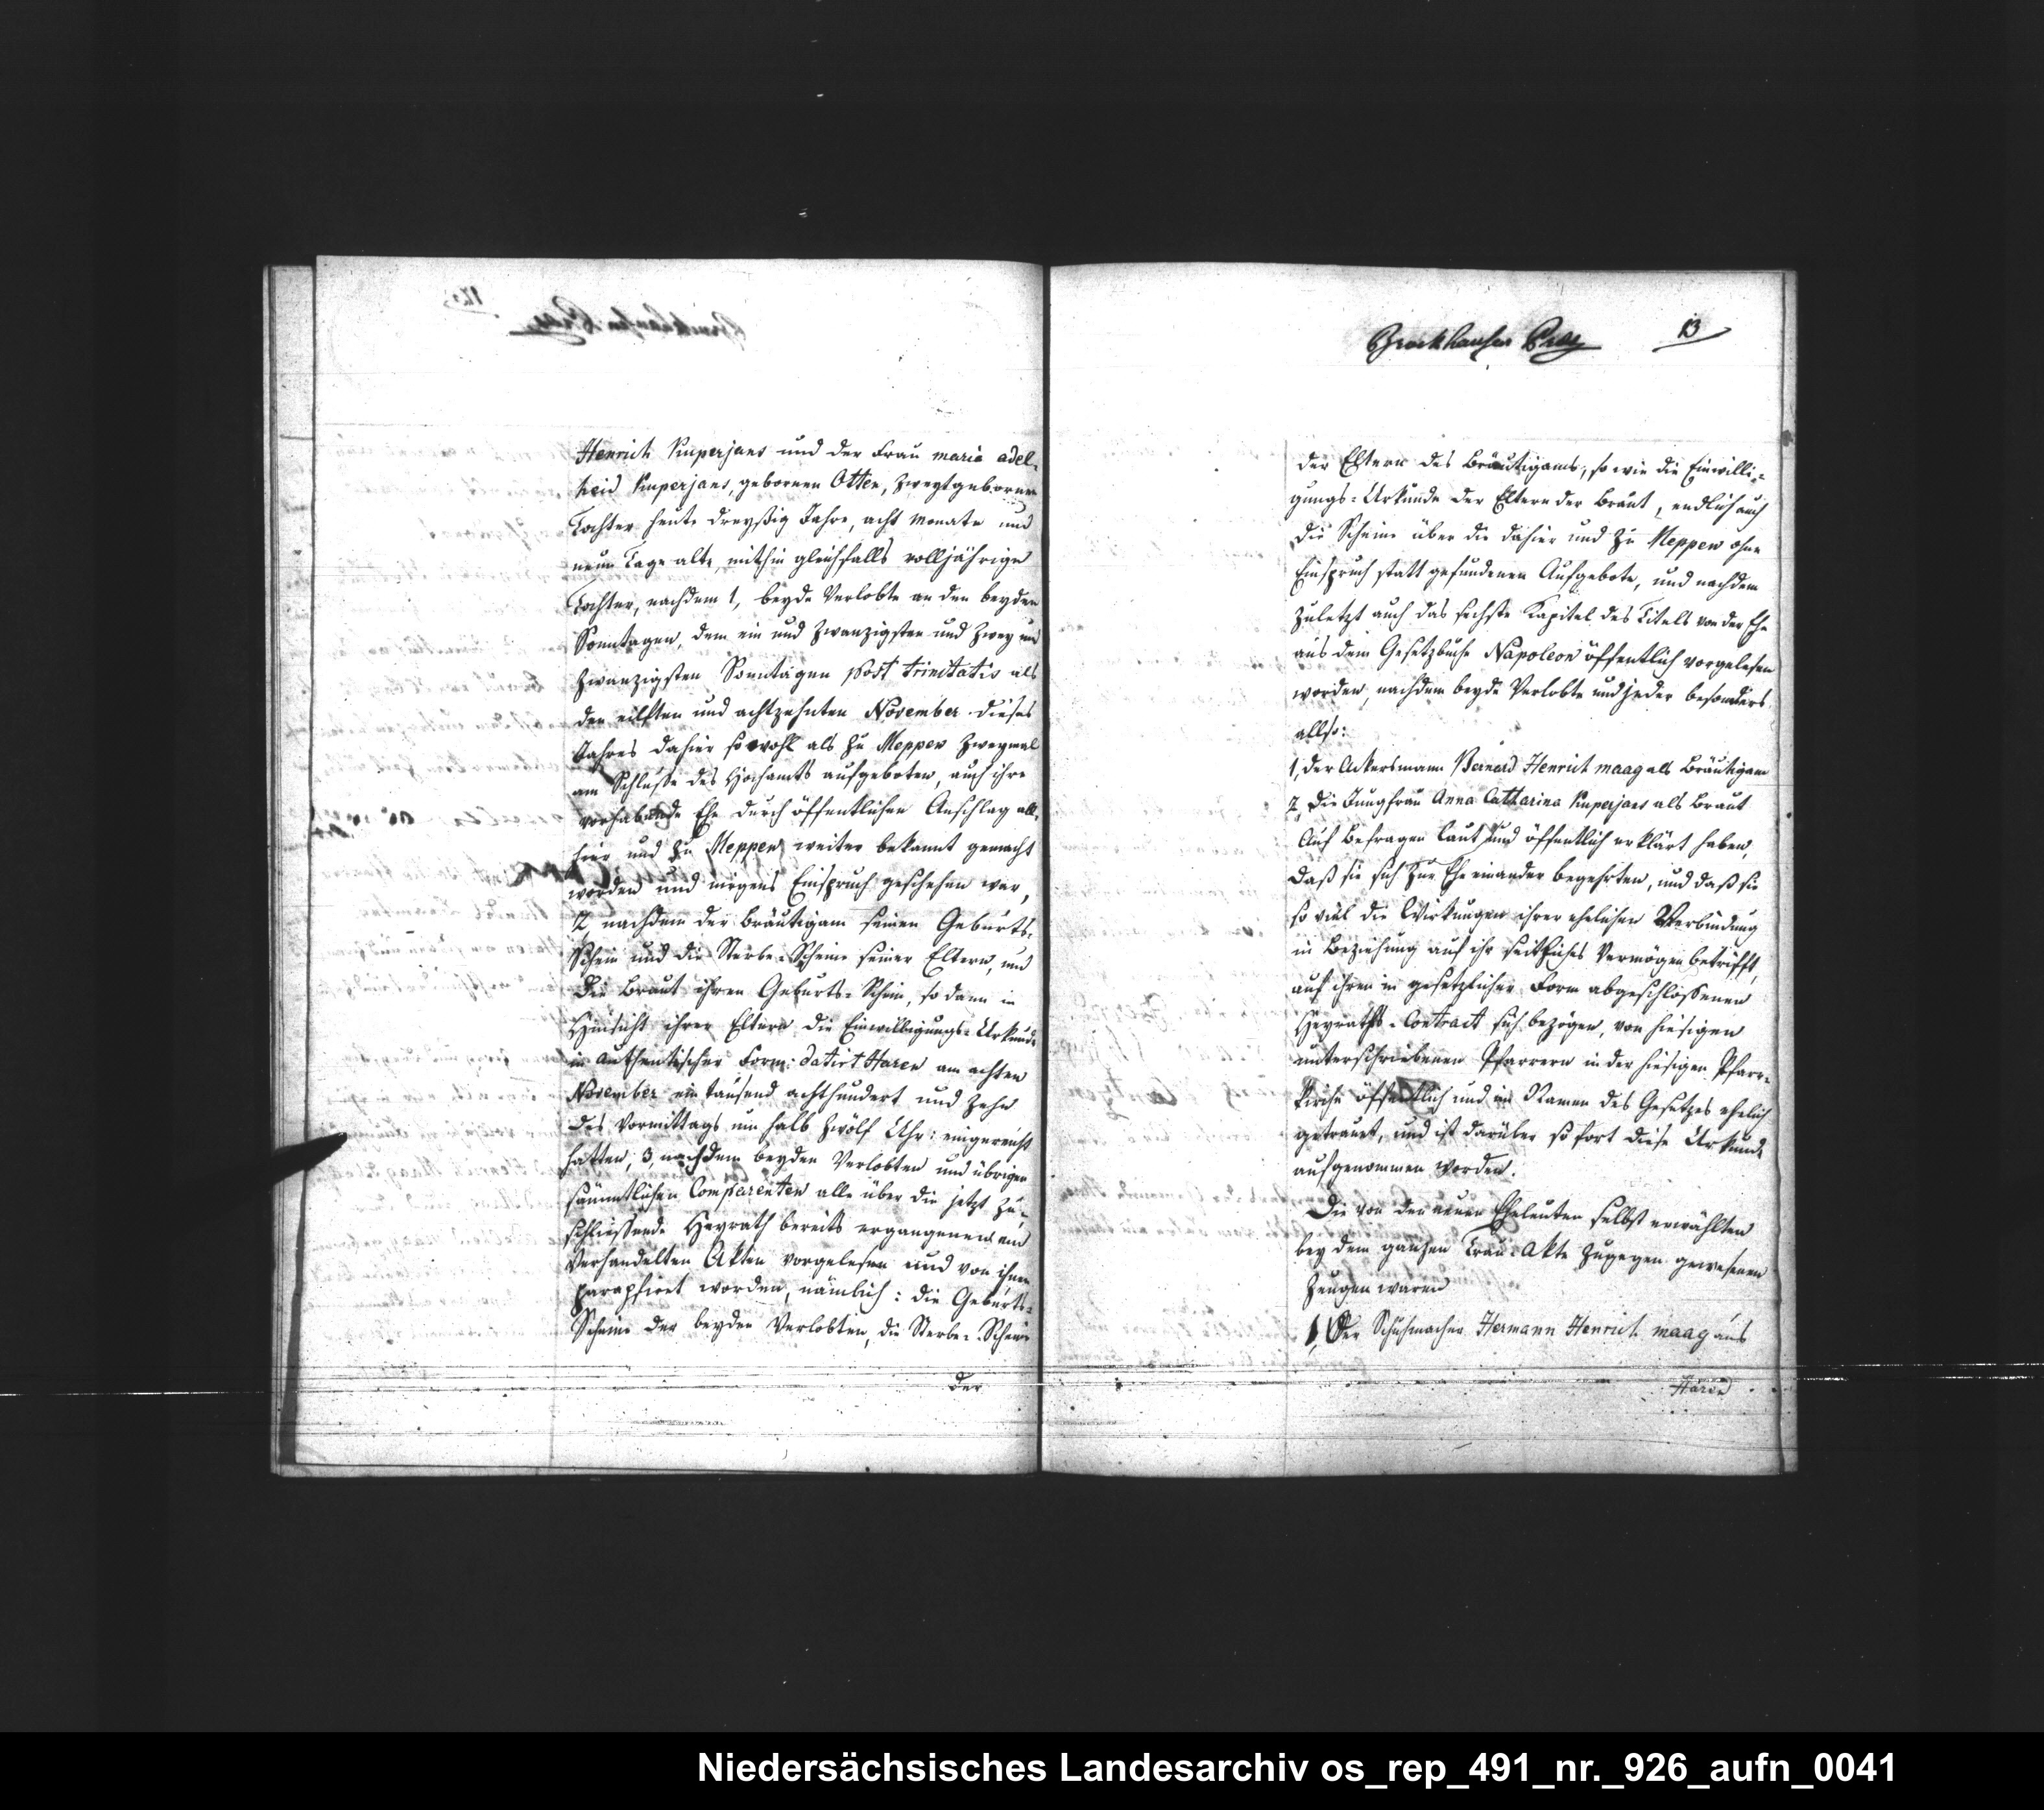 Henrich Kuperjans und der Frau maria adel-
heid Kuperjans, gebornen Otten, zweytgeborne
Tochter heute dreyßig Jahre, acht Monate und
neun Tage alte, mithin gleichfalls volljährige
Tochter, nachdem 1, beyde Verlobte an den beyden
Sonntagen, dem ein und zwanzigsten und zwey und
zwanzigsten Sonntagen post trinitatis als
den eilften und achtzehnten November dieses
Jahres dahier sowohl als zu Meppen zweymal
am Schluße des Hochamts aufgeboten, auch ihre
vorhabende Ehe durch öffentlichen Anschlag all-
hier und zu Meppen weiter bekannt gemacht
worden und nirgens Einspruch geschehen war,
2, nachdem der Bräutigam seinen Geburts-
Schein und die Sterbe-Scheine seiner Eltern, und
die Braut ihren Geburts-Schein, so dann in
Hinsicht ihrer Eltern die Einwilligungs-Urkunde
in authentischer Form: datirt Haren am achten
November ein tausend achthundert und zehn
des Vormittags um halb zwölf Uhr: eingereicht
hatten, 3, nachdem beyden Verlobten und übrigen
sämmtlichen Comparenten alle über die jetzt zu-
schliessende Heyrath bereits ergangenen und
Verhandelten Akten vorgelesen und von ihnen
paraphiret worden, nämlich: die Geburts-
Scheine der beyden Verlobten, die Sterbe-Scheine
der
Brockhausen 13
der Eltern des Bräutigams, so wie die Einwilli-
gungs-Urkunde der Eltern der Braut, endlich auch
die Scheine über die dahier und zu Meppen ohne
Einspruch statt gefundenen Aufgebote, und nachdem
zuletzt auch das sechste Kapitel des Titels von der Ehe
aus dem Gesetzbuche Napoleon öffentlich vorgelesen
worden, nachdem beyde Verlobte und jeder besonders
allso:
1, der Ackersmann Bernard Henrich maag als Bräutigam
2, die Jungfrau Anna Catharina Kuperjans als Braut
Auf Befragen laut und öffentlich erklärt haben,
daß sie sich zur Ehe einander begehrten, und daß sie
so viel die Wirkungen ihrer ehelichen Verbindung
in Beziehung auf ihr zeitliches Vermögen betrifft,
auf ihren in gesetzlicher Form abgeschlossenen
Heyraths-Contract sich bezögen, von hiesigen
unterschriebenen Pfarrern in der hiesigen Pfarr-
kirche öffentlich und im Namen des Gesetzes ehelich
getrauet, und ist darüber so fort diese Urkunde
aufgenommen worden.
Die von den neuen Eheleuten selbst erwählten
bey dem ganzen Trau-Akte zugegen gewesenen
Zeugen waren
1, Der Schuhmacher Hermann Henrich maag aus
Haren
Niedersächsisches Landesarchiv os_rep_491_nr._926_aufn_0041